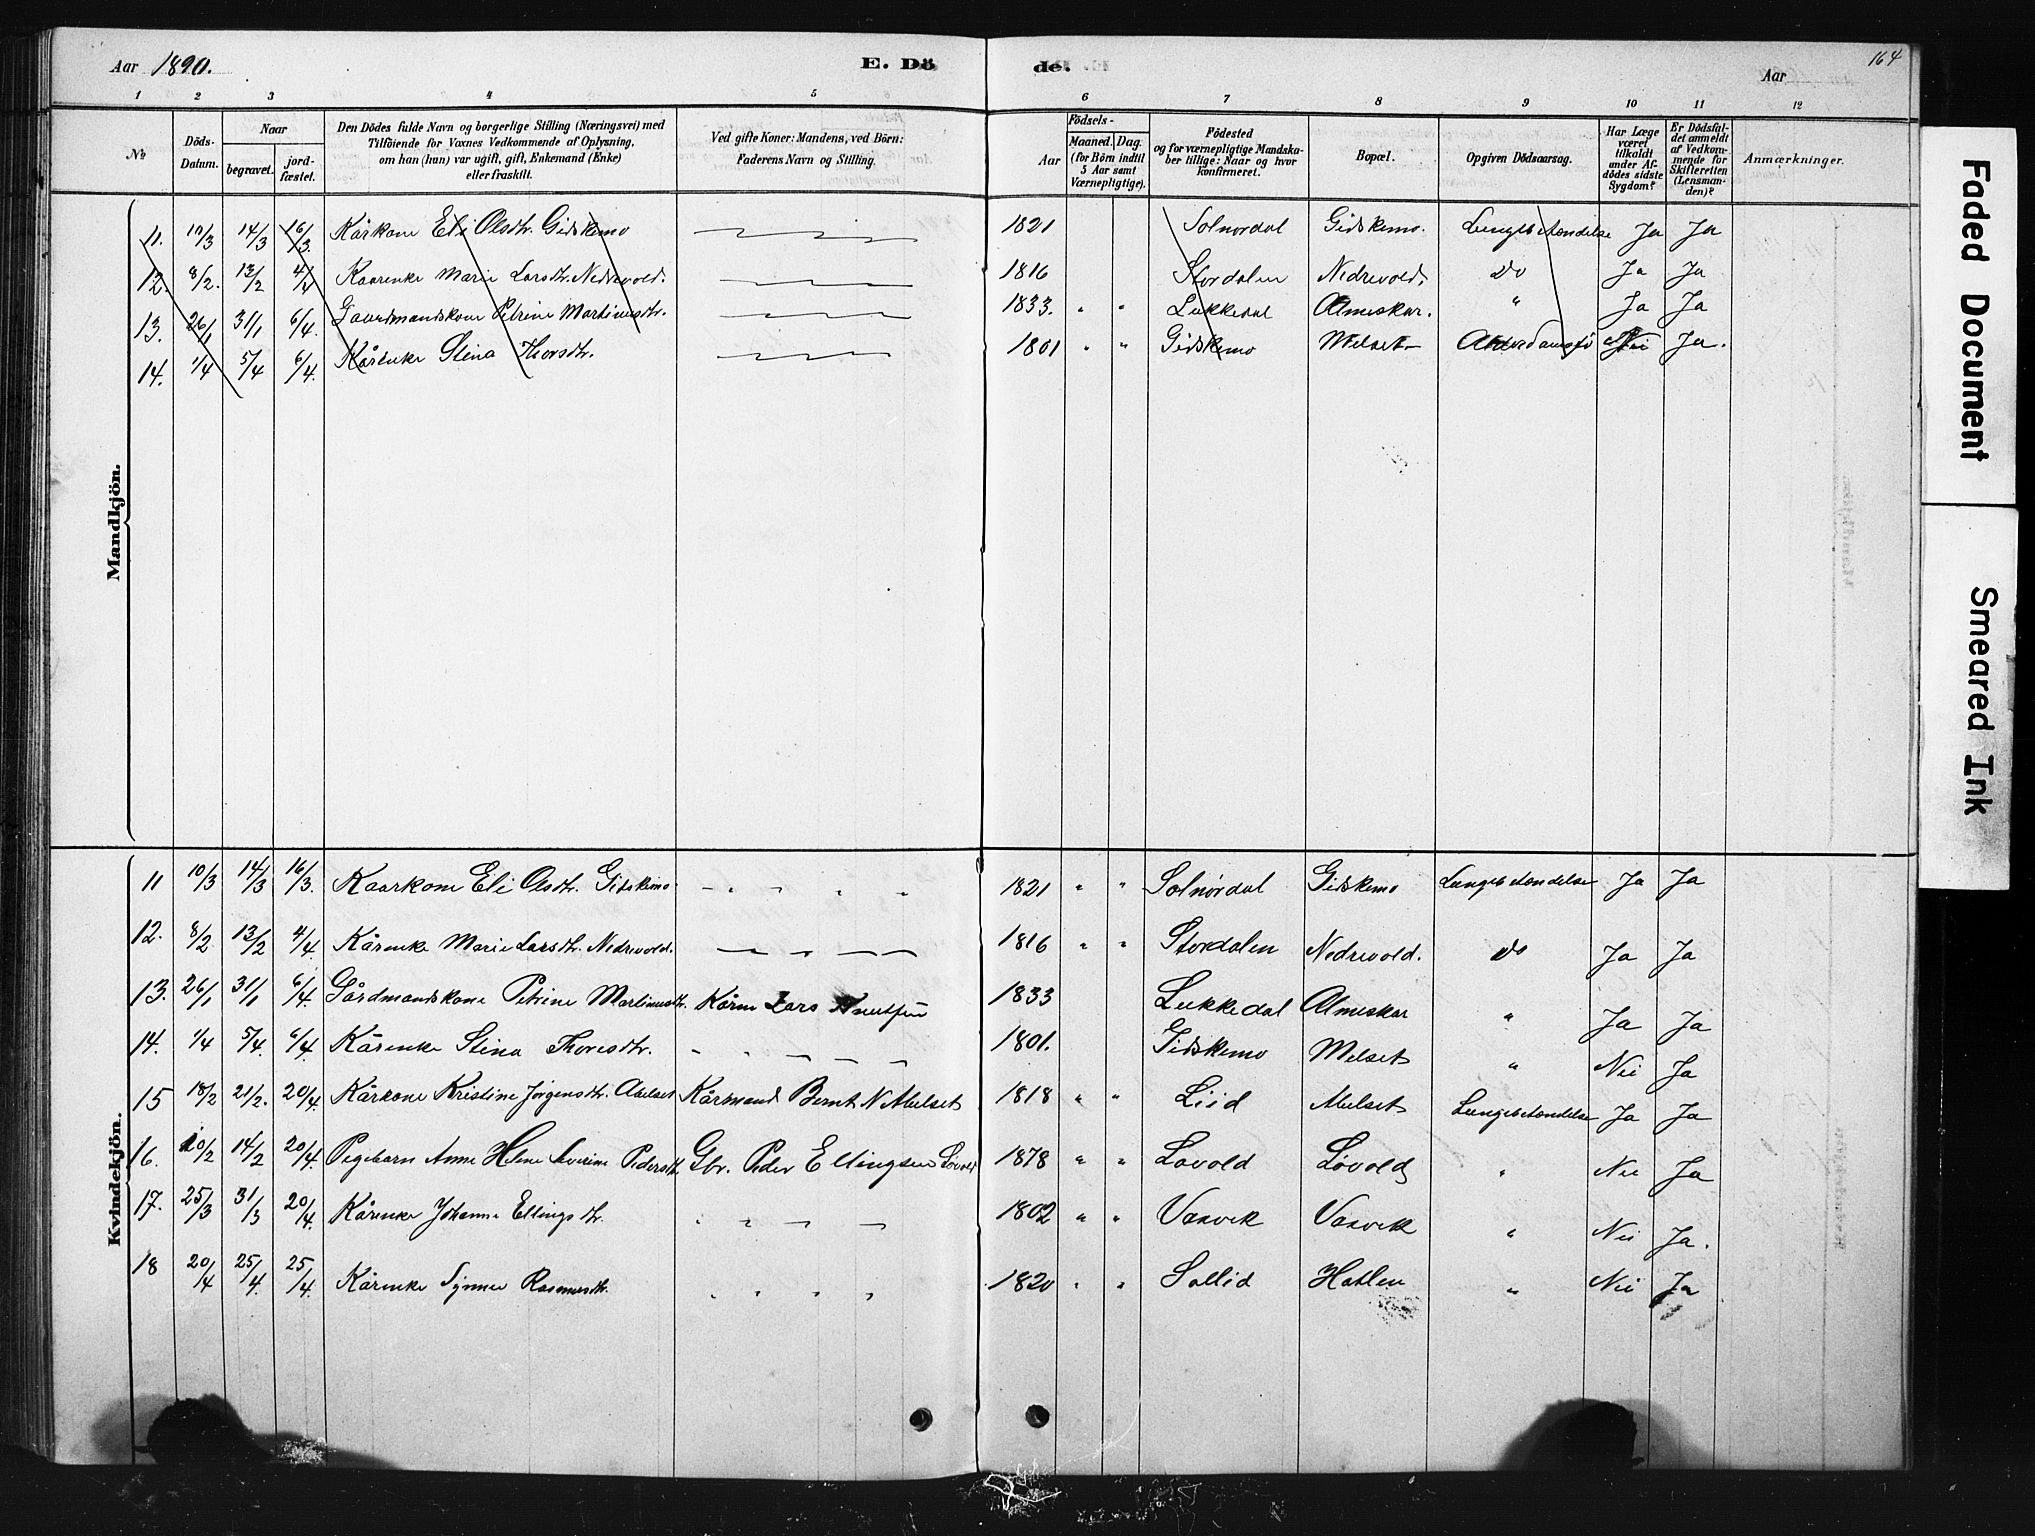 Aar 1890. E. Dö de. Aar 164
1 2 3 4 5 6 7 8 9 10 11 12
No
Döds-Datum.
Naar
begravet.
jord-fæstet.
Den Dödes fulde Navn og borgerlige Stilling (Næringsvei) med
Tilföiende for Voxnes Vedkommende af Oplysning,
om han (hun) var ugift, gift, Enkemand (Enke)
eller fraskilt.
Ved gifte Koner: Mandens, ved Börn:
Faderens Navn og Stilling.
Födsels-
Aar
Maaned. Dag.
(for Börn indtil
5 Aar samt
Værnepligtige).
Födested
og for værnepligtige Mandska-
ber tillige: Naar og hvor
konfirmeret.
Bopæl.
Opgiven Dödsaarsag.
Har Læge
været
tilkaldt
under Af-
dödes sidste
Sygdom?
Er Dödsfal-
det anmeldt
af Vedkom-
mende for
Skifteretten
(Lensman-
den)?
Anmærkninger.
Mandkjön.
11. 10/3 14/3 16/3 Kårkone Eli Olsdtr. Gidskemo 1821 Solnördal Gidskemo. Lungebetændelse Ja Ja
12. 8/2. 13/2 4/4 Kaarenke Marie Larsdtr. Nedrevold. 1816 Stordalen Nedrevold. Do Ja Ja
13. 26/1 31/1 6/4. Gaardmandskone Petrine Martinusdtr. 1833. " " Lukkedal Almeskar. " Ja Ja
14. 1/4 5/4 6/4. Kårenke Stina Thorsdtr. 1801 " " Gidskemo Melset Nei Ja.
Kvindekjön.
11 10/3 14/3 16/3. Kaarkone Eli Olsdtr. Gidskemo 1821 " " Solnördal Gidskemo Lungebetændelse Ja Ja
12. 8/2 13/2 4/4. Kårenke Marie Larsdtr. Nedrevold. 1816 " " Stordalen Nedrevold. do Ja Ja
13. 26/1 31/1 6/4. Gårdmandskone Petrine Martinusdtr. Kårm Lars Knutsen 1833 Lukkedal Almeskar " Ja Ja
14. 1/4 5/4. 6/4. Kårenke Stina Thoresdtr. 1801. Gidskemo Melset " Nei Ja
15 18/2 21/2. 20/4. Kårkone Kristine Jörgensdtr. Abelset Kårmand Bernt N. Abelset 1818 " " Liid Abelset Lungebetændelse Ja Ja
16. 10/2 14/2 20/4. Pigebarn Anne Helene Severine Pedersdtr. Gbr. Peder Ellingsen Lövold 1878 " " Lövold Lövold " Nei Ja
17. 25/3 31/3 20/4. Kårenke Johanne Ellingsdtr. 1802 " " Vasvik Vasvik " Nei Ja.
18 20/4 25/4. 25/4. Kårenke Synnev Rasmusdtr. 1820 " " Sollid Hatlen " Nei Ja
Faded Document
Smeared Ink